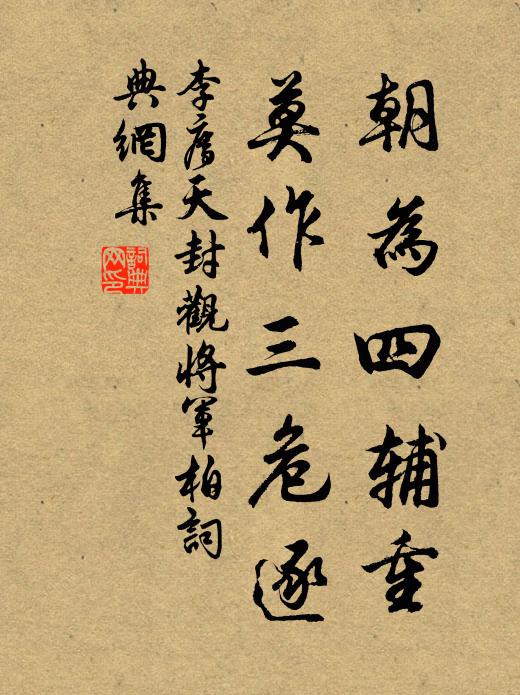 朝為四輔重
莫作三危逐
李廌天封觀將軍柏詞
典網集
詞典
网印